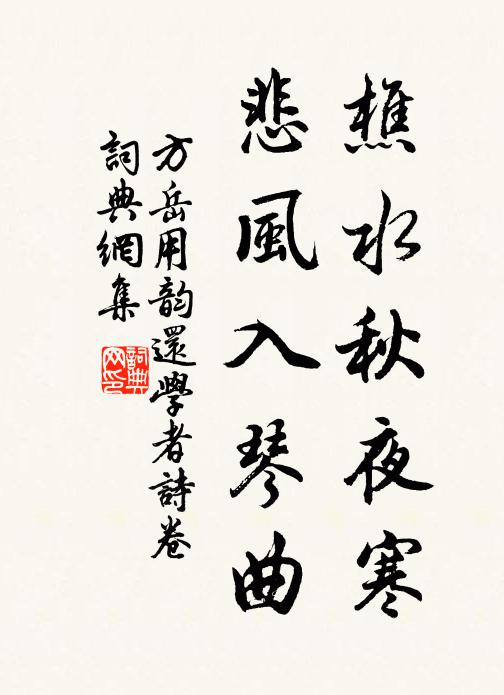 樵水秋夜寒
悲風入琴曲
方岳用韵還學者詩卷
詞典網集
詞典
网印